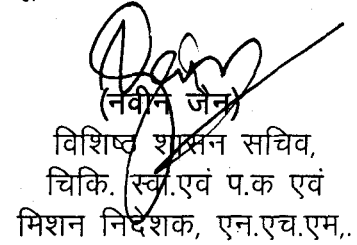 (नवीन जैन)
विशिष्ठ शासन सचिव,
चिकि. स्वा.एवं प.क एवं
मिशन निदेशक, एन.एच.एम,.